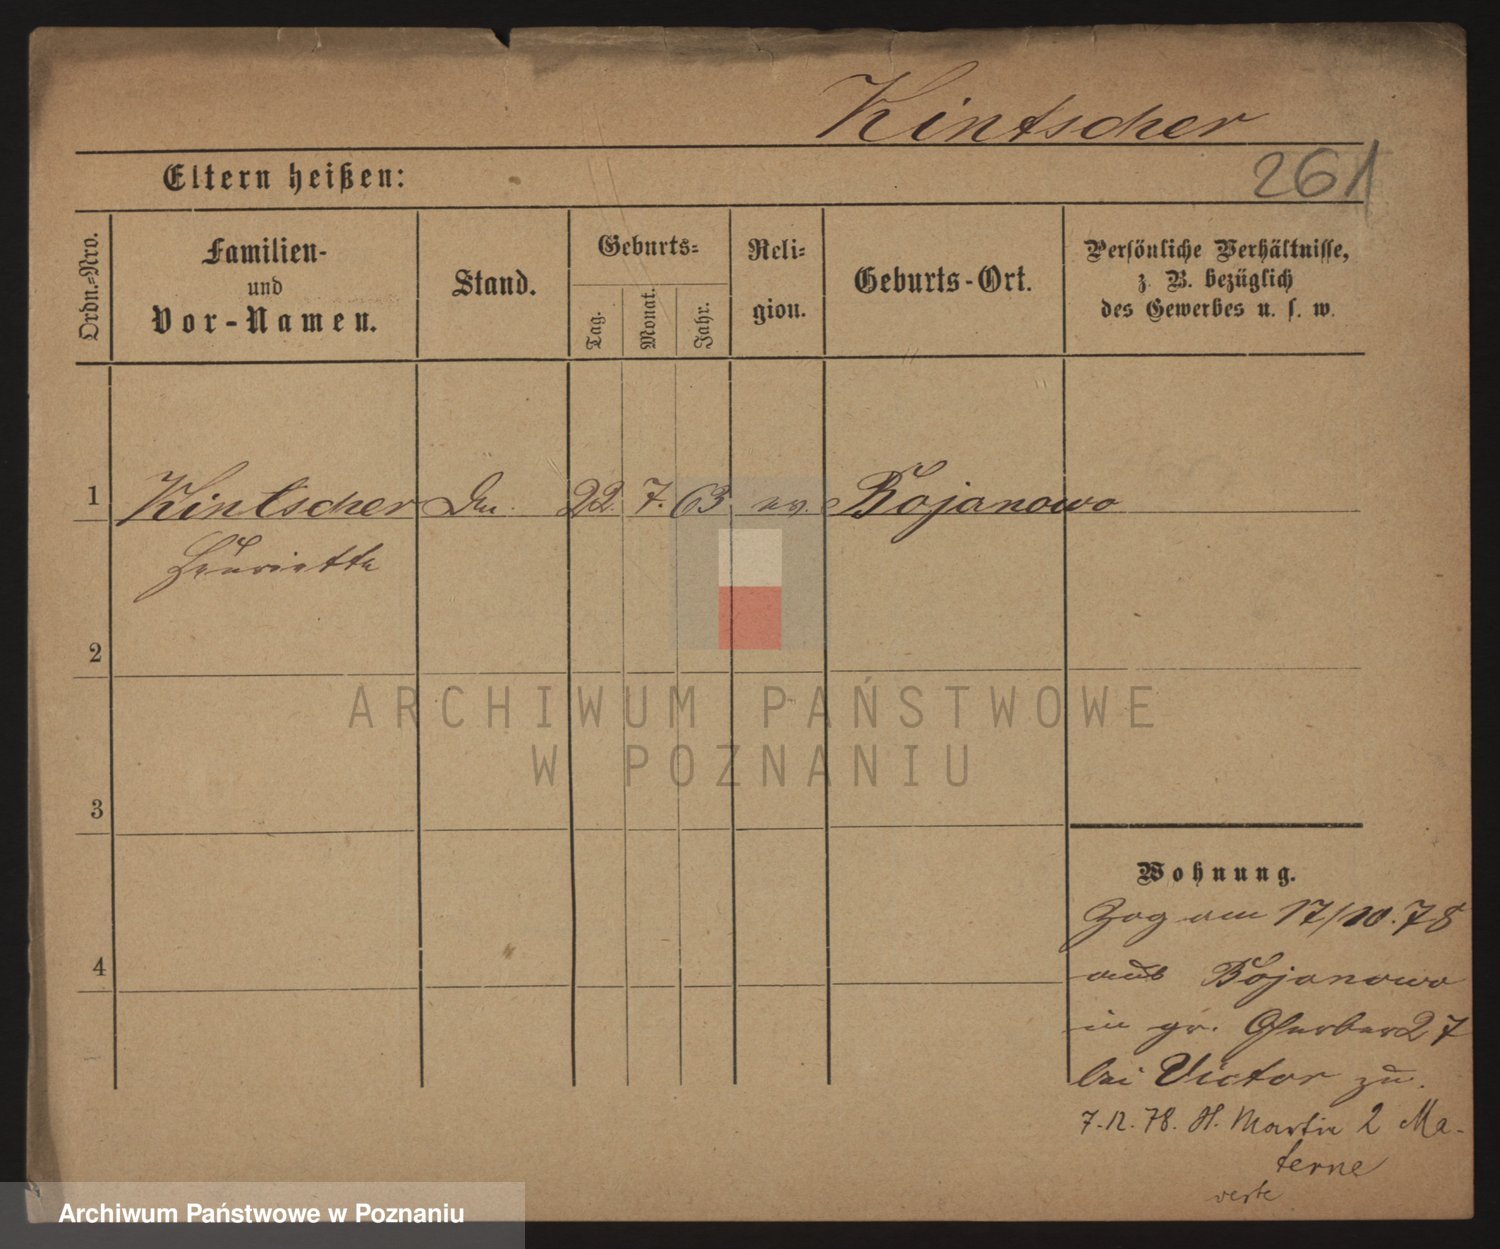 Kintscher
261
Eltern heißen:
Ordn.-Nro.
Familien-
und
Vor-Namen.
Stand.
Geburts-
Tag.
Monat.
Jahr.
Reli-
gion.
Geburts-Ort.
Persönliche Verhältnisse,
z. B. bezüglich
des Gewerbes u. s. w.
1 Kintscher 22. 7. 63 ev. Bojanowo
Henriette
2
3
4
Wohnung.
Zog am 17/10.78
aus Bojanowo
in gr. Gerber 27
bei Victor zu.
7.12.78. St. Martin 2 Ma-
terne
verte
ARCHIWUM PAŃSTWOWE
W POZNANIU
Archiwum Państwowe w Poznaniu